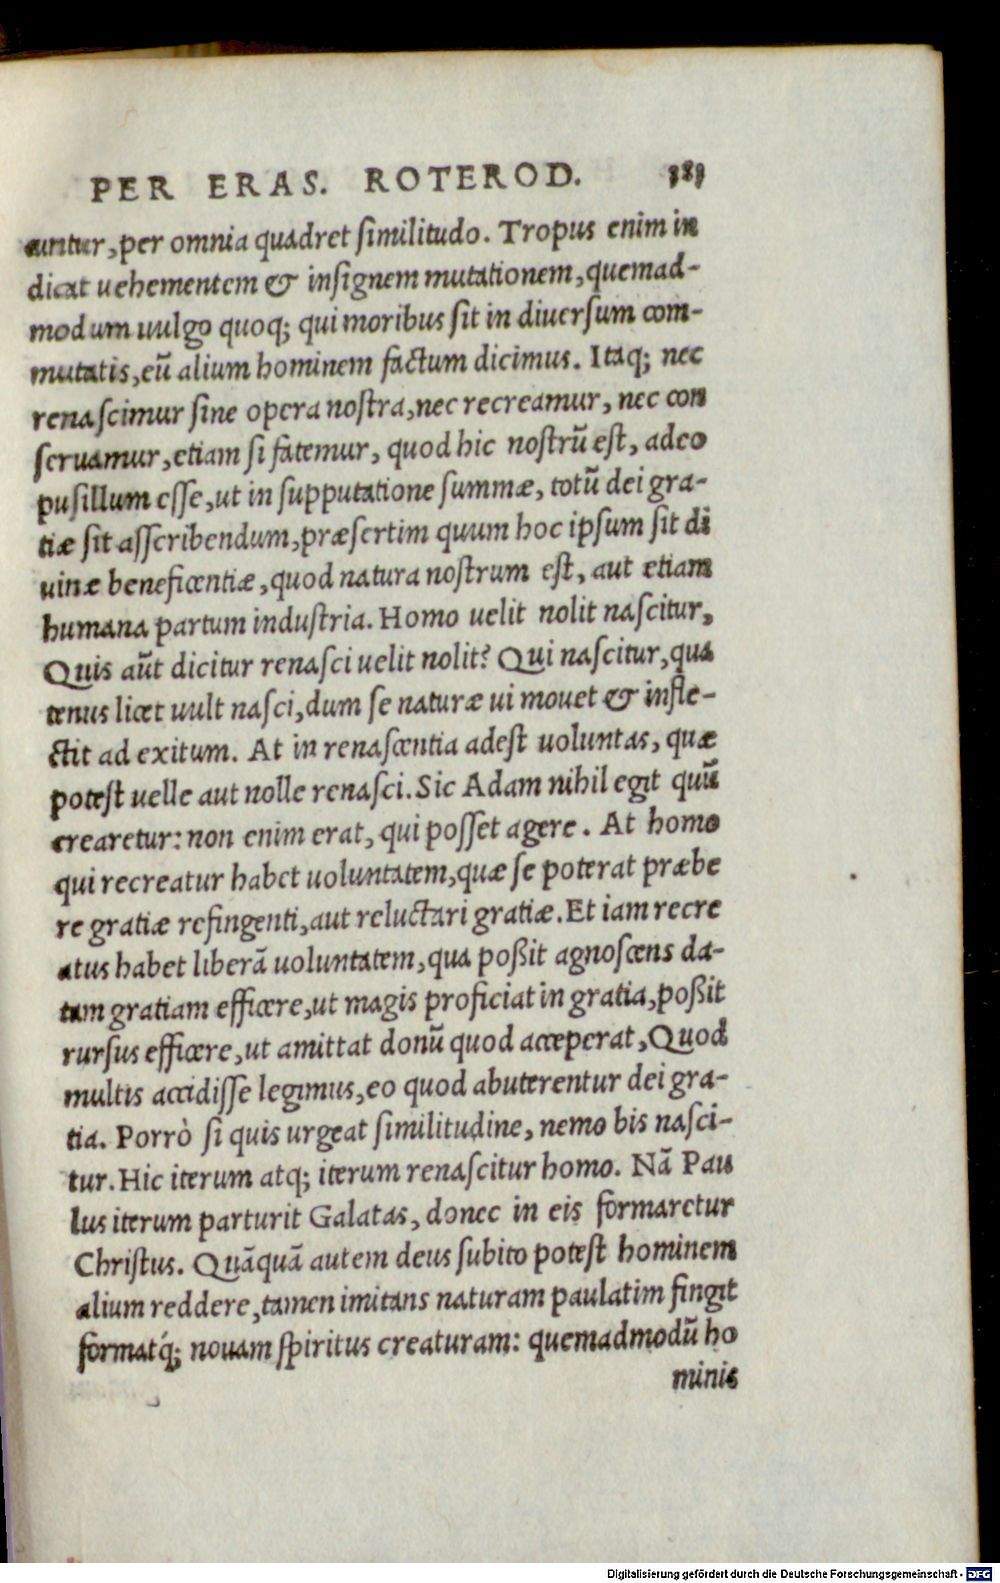 PER ERAS. ROTEROD. 389
cuntur, per omnia quadret ſimilitudo. Tropus enim in
dicat uehementem & inſignem mutationem, quemad-
modum uulgo quoq; qui moribus ſit in diuerſum com-
mutatis, eũ alium hominem factum dicimus. Itaq; nec
renaſcimur ſine opera noſtra, nec recreamur, nec con
ſeruamur, etiam ſi fatemur, quod hic noſtrũ eſt, adeo
puſillum eſſe, ut in ſupputatione ſummæ, totũ dei gra-
tiæ ſit aſſcribendum, præſertim quum hoc ipſum ſit di
uinæ beneficentiæ, quod natura noſtrum eſt, aut etiam
humana partum induſtria. Homo uelit nolit naſcitur,
Quis aũt dicitur renaſci uelit nolit? Qui naſcitur, qua
tenus licet uult naſci, dum ſe naturæ ui mouet & infle-
ctit ad exitum. At in renaſcentia adeſt uoluntas, quæ
poteſt uelle aut nolle renaſci. Sic Adam nihil egit quũ
crearetur: non enim erat, qui poſſet agere. At homo
qui recreatur habet uoluntatem, quæ ſe poterat præbe
re gratiæ refingenti, aut reluctari gratiæ. Et iam recre
atus habet liberã uoluntatem, qua poßit agnoſcens da-
tam gratiam efficere, ut magis proficiat in gratia, poßit
rurſus efficere, ut amittat donũ quod acceperat, Quod
multis accidiſſe legimus, eo quod abuterentur dei gra-
tia. Porrò ſi quis urgeat ſimilitudine, nemo bis naſci-
tur. Hic iterum atq; iterum renaſcitur homo. Nã Pau
lus iterum parturit Galatas, donec in eis formaretur
Chriſtus. Quãquã autem deus ſubito poteſt hominem
alium reddere, tamen imitans naturam paulatim fingit
formatq́; nouam ſpiritus creaturam: quemadmodũ ho
minis
Digitalisierung gefördert durch die Deutsche Forschungsgemeinschaft - DFG